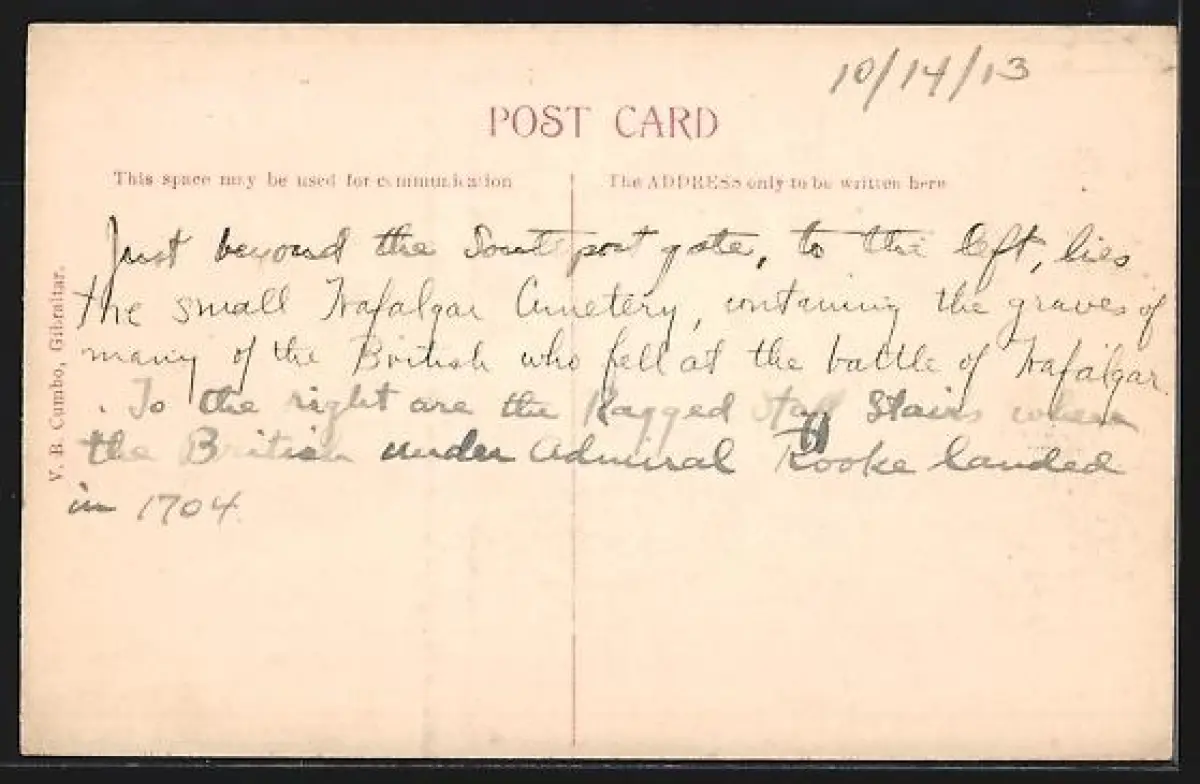 10/14/13
POST CARD
This space may be used for communication
The ADDRESS only to be written here
Just beyond the Southport gate, to the left, lies
the small Trafalgar Cemetery, containing the graves of
many of the British who fell at the battle of Trafalgar.
To the right are the Ragged Staff Stairs where
the British under Admiral Rooke landed
in 1704
V. B. Cumbo, Gibraltar.